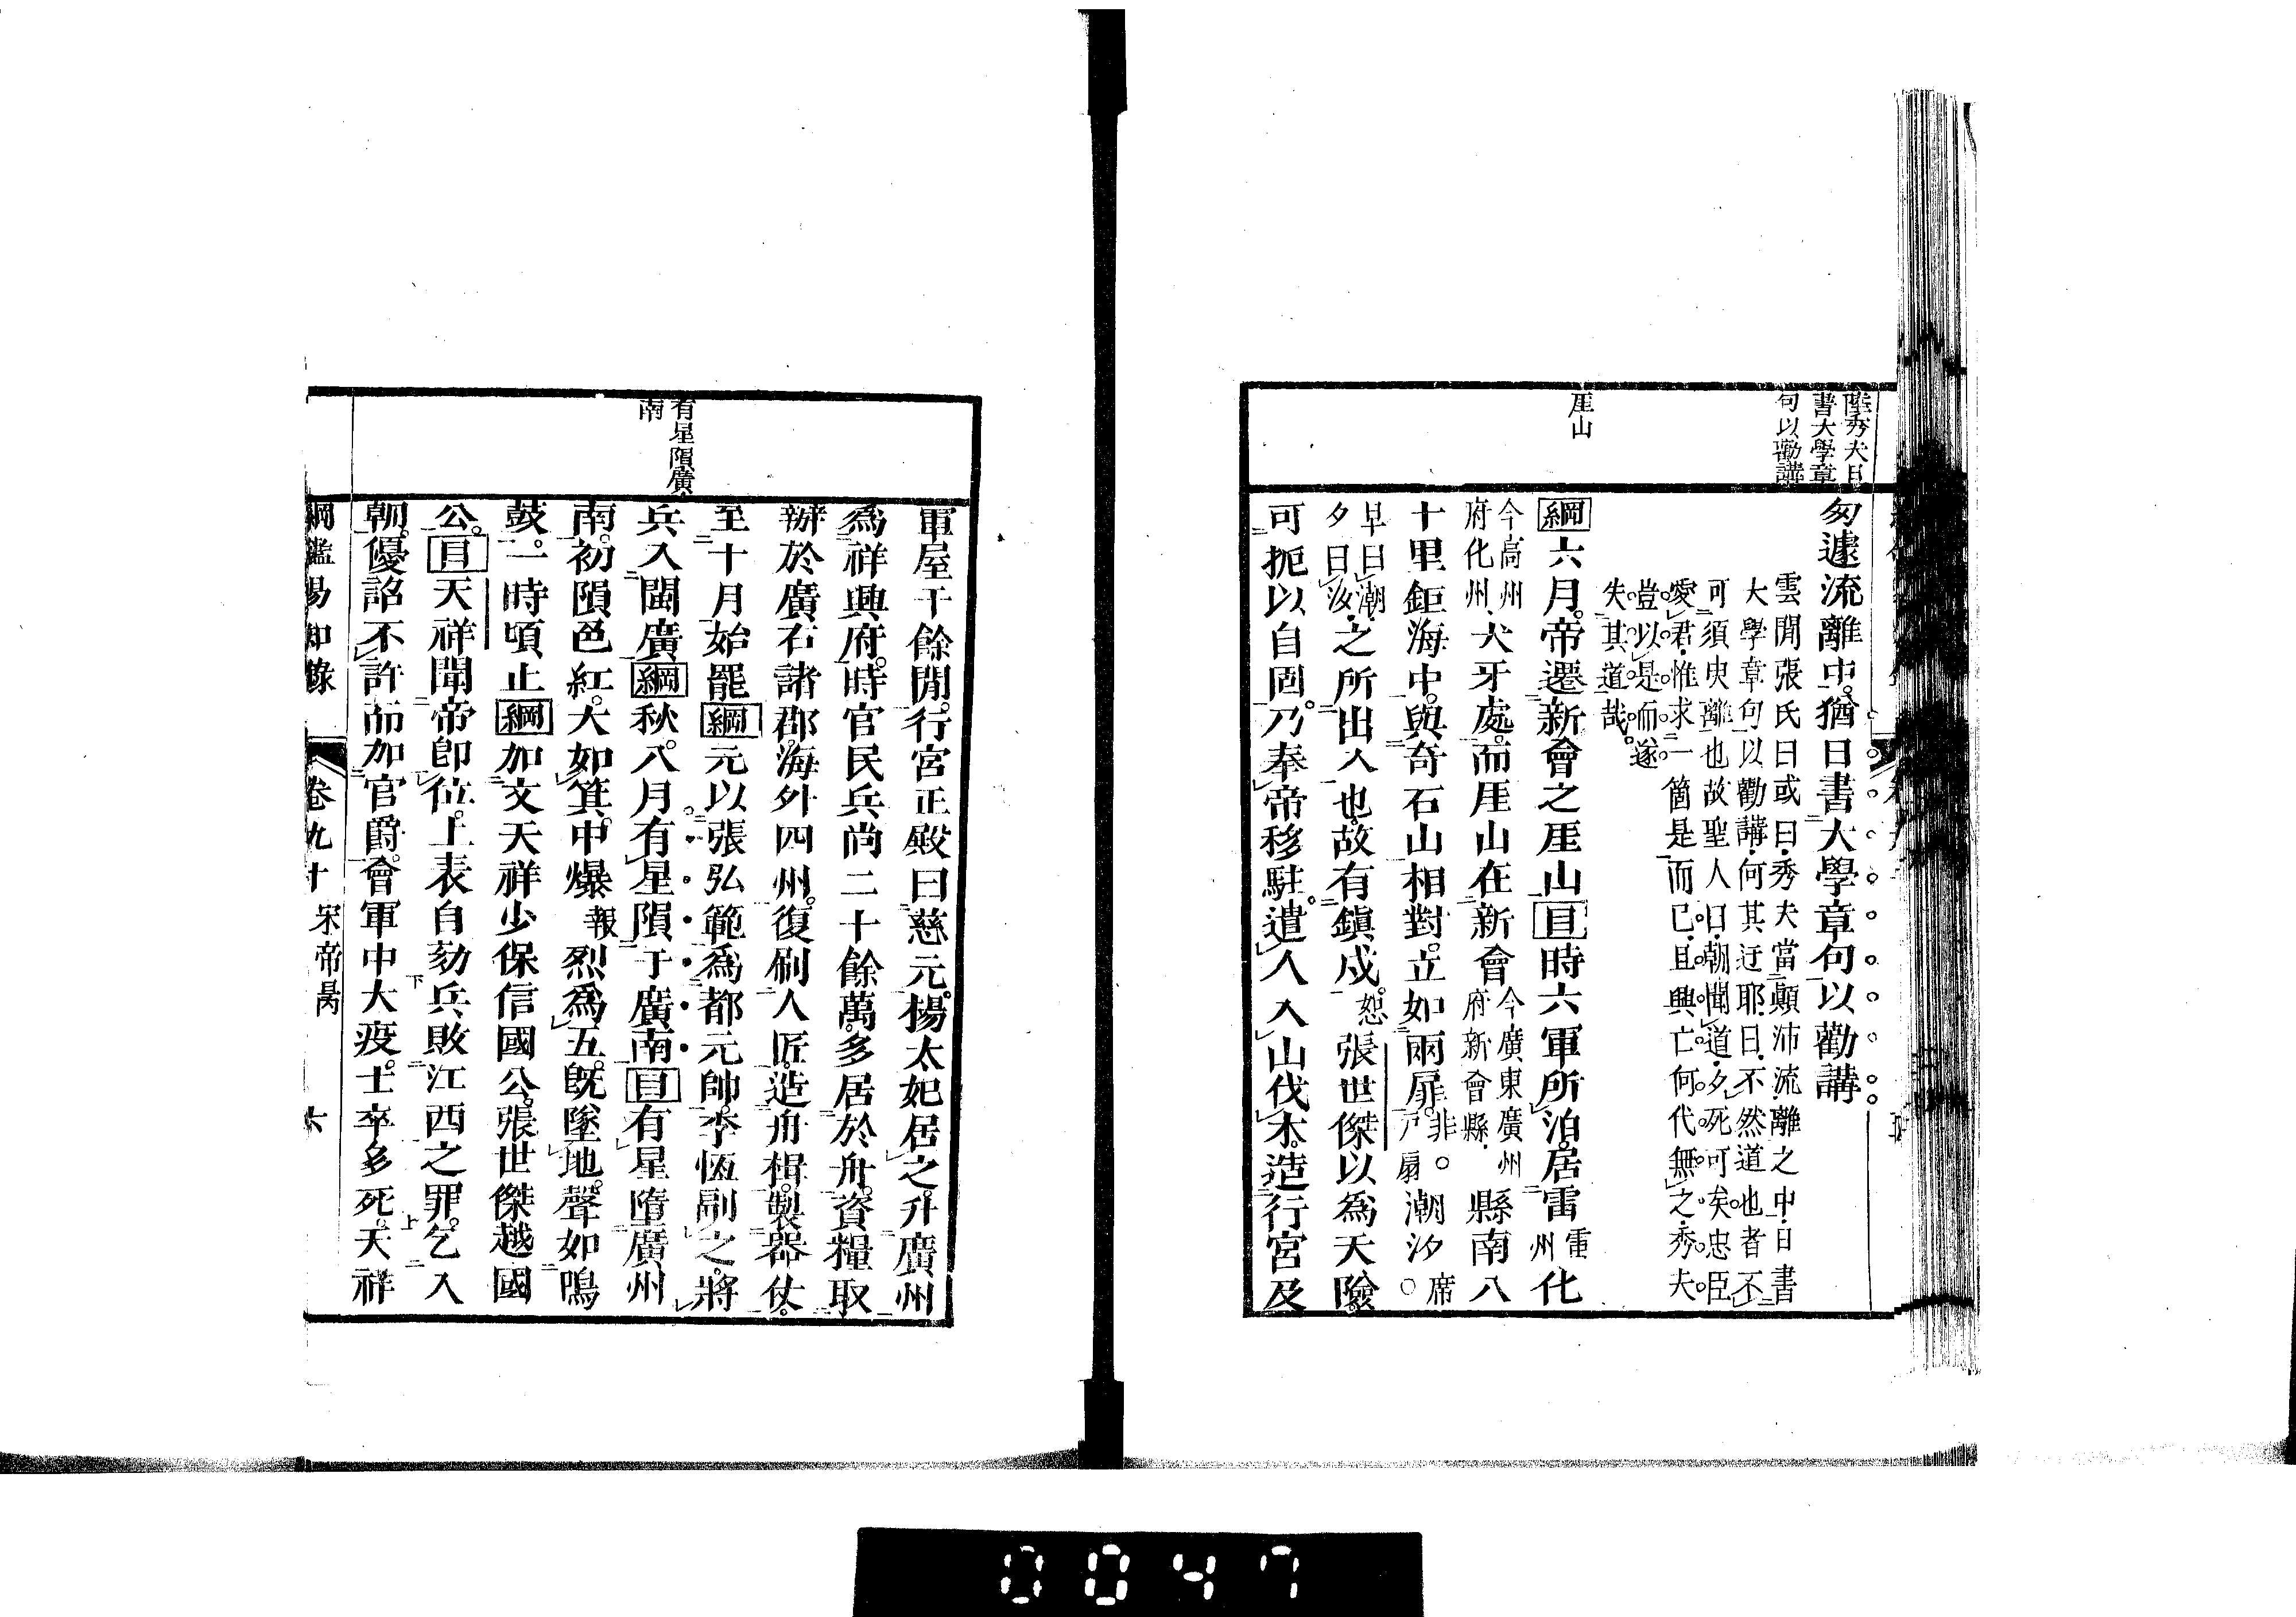 陸秀夫日
書大學章
句以勸講
厓山
匆遽流離中。猶日書大學章句以勸講
雲間張氏曰或曰秀夫當顚沛流離之中日書
大學章句以勸講何其迂耶曰不然道也者不
可須臾離也故聖人曰朝聞道夕死可矣忠臣
愛君惟求一箇是而已且興亡何代無之秀夫
豈以是而遂
失其道哉。
綱六月。帝遷新會之厓山目時六軍所泊。居雷雷州化
今高州
府化州犬牙處。而厓山在新會今廣東廣州府新會縣縣南八
十里鉅海中。與奇石山相對。立如兩扉。非。戶扇潮汐席〇
早曰潮
夕曰汐之所出入也。故有鎭戍。恕張世傑以爲天險。
可扼以自固。乃奉帝移駐。遣人入山伐木。造行宮及
有星隕廣
南
軍屋千餘閒。行宮正殿曰慈元。楊太妃居之。升廣州
爲祥興府。時官民兵尚二十餘萬。多居於舟。資糧取
辦於廣右諸郡。海外四州。復刷人匠。造舟楫。製器仗。
至十月始罷綱元以張弘範爲都元帥。李恆副之。將
兵入閩廣綱秋。八月有星隕于廣南目有星墮廣州
南。初隕色紅。大如箕。中爆報烈爲五。旣墜地。聲如鳴
鼓。一時頃止綱加文天祥少保信國公。張世傑越國
公。目天祥聞帝卽位。上表自劾兵敗江西之罪。乞入
朝。優詔不許而加官爵。會軍中大疫。士卒多死。天祥
綱鑑易知錄 卷九十 宋帝昺 六
0047